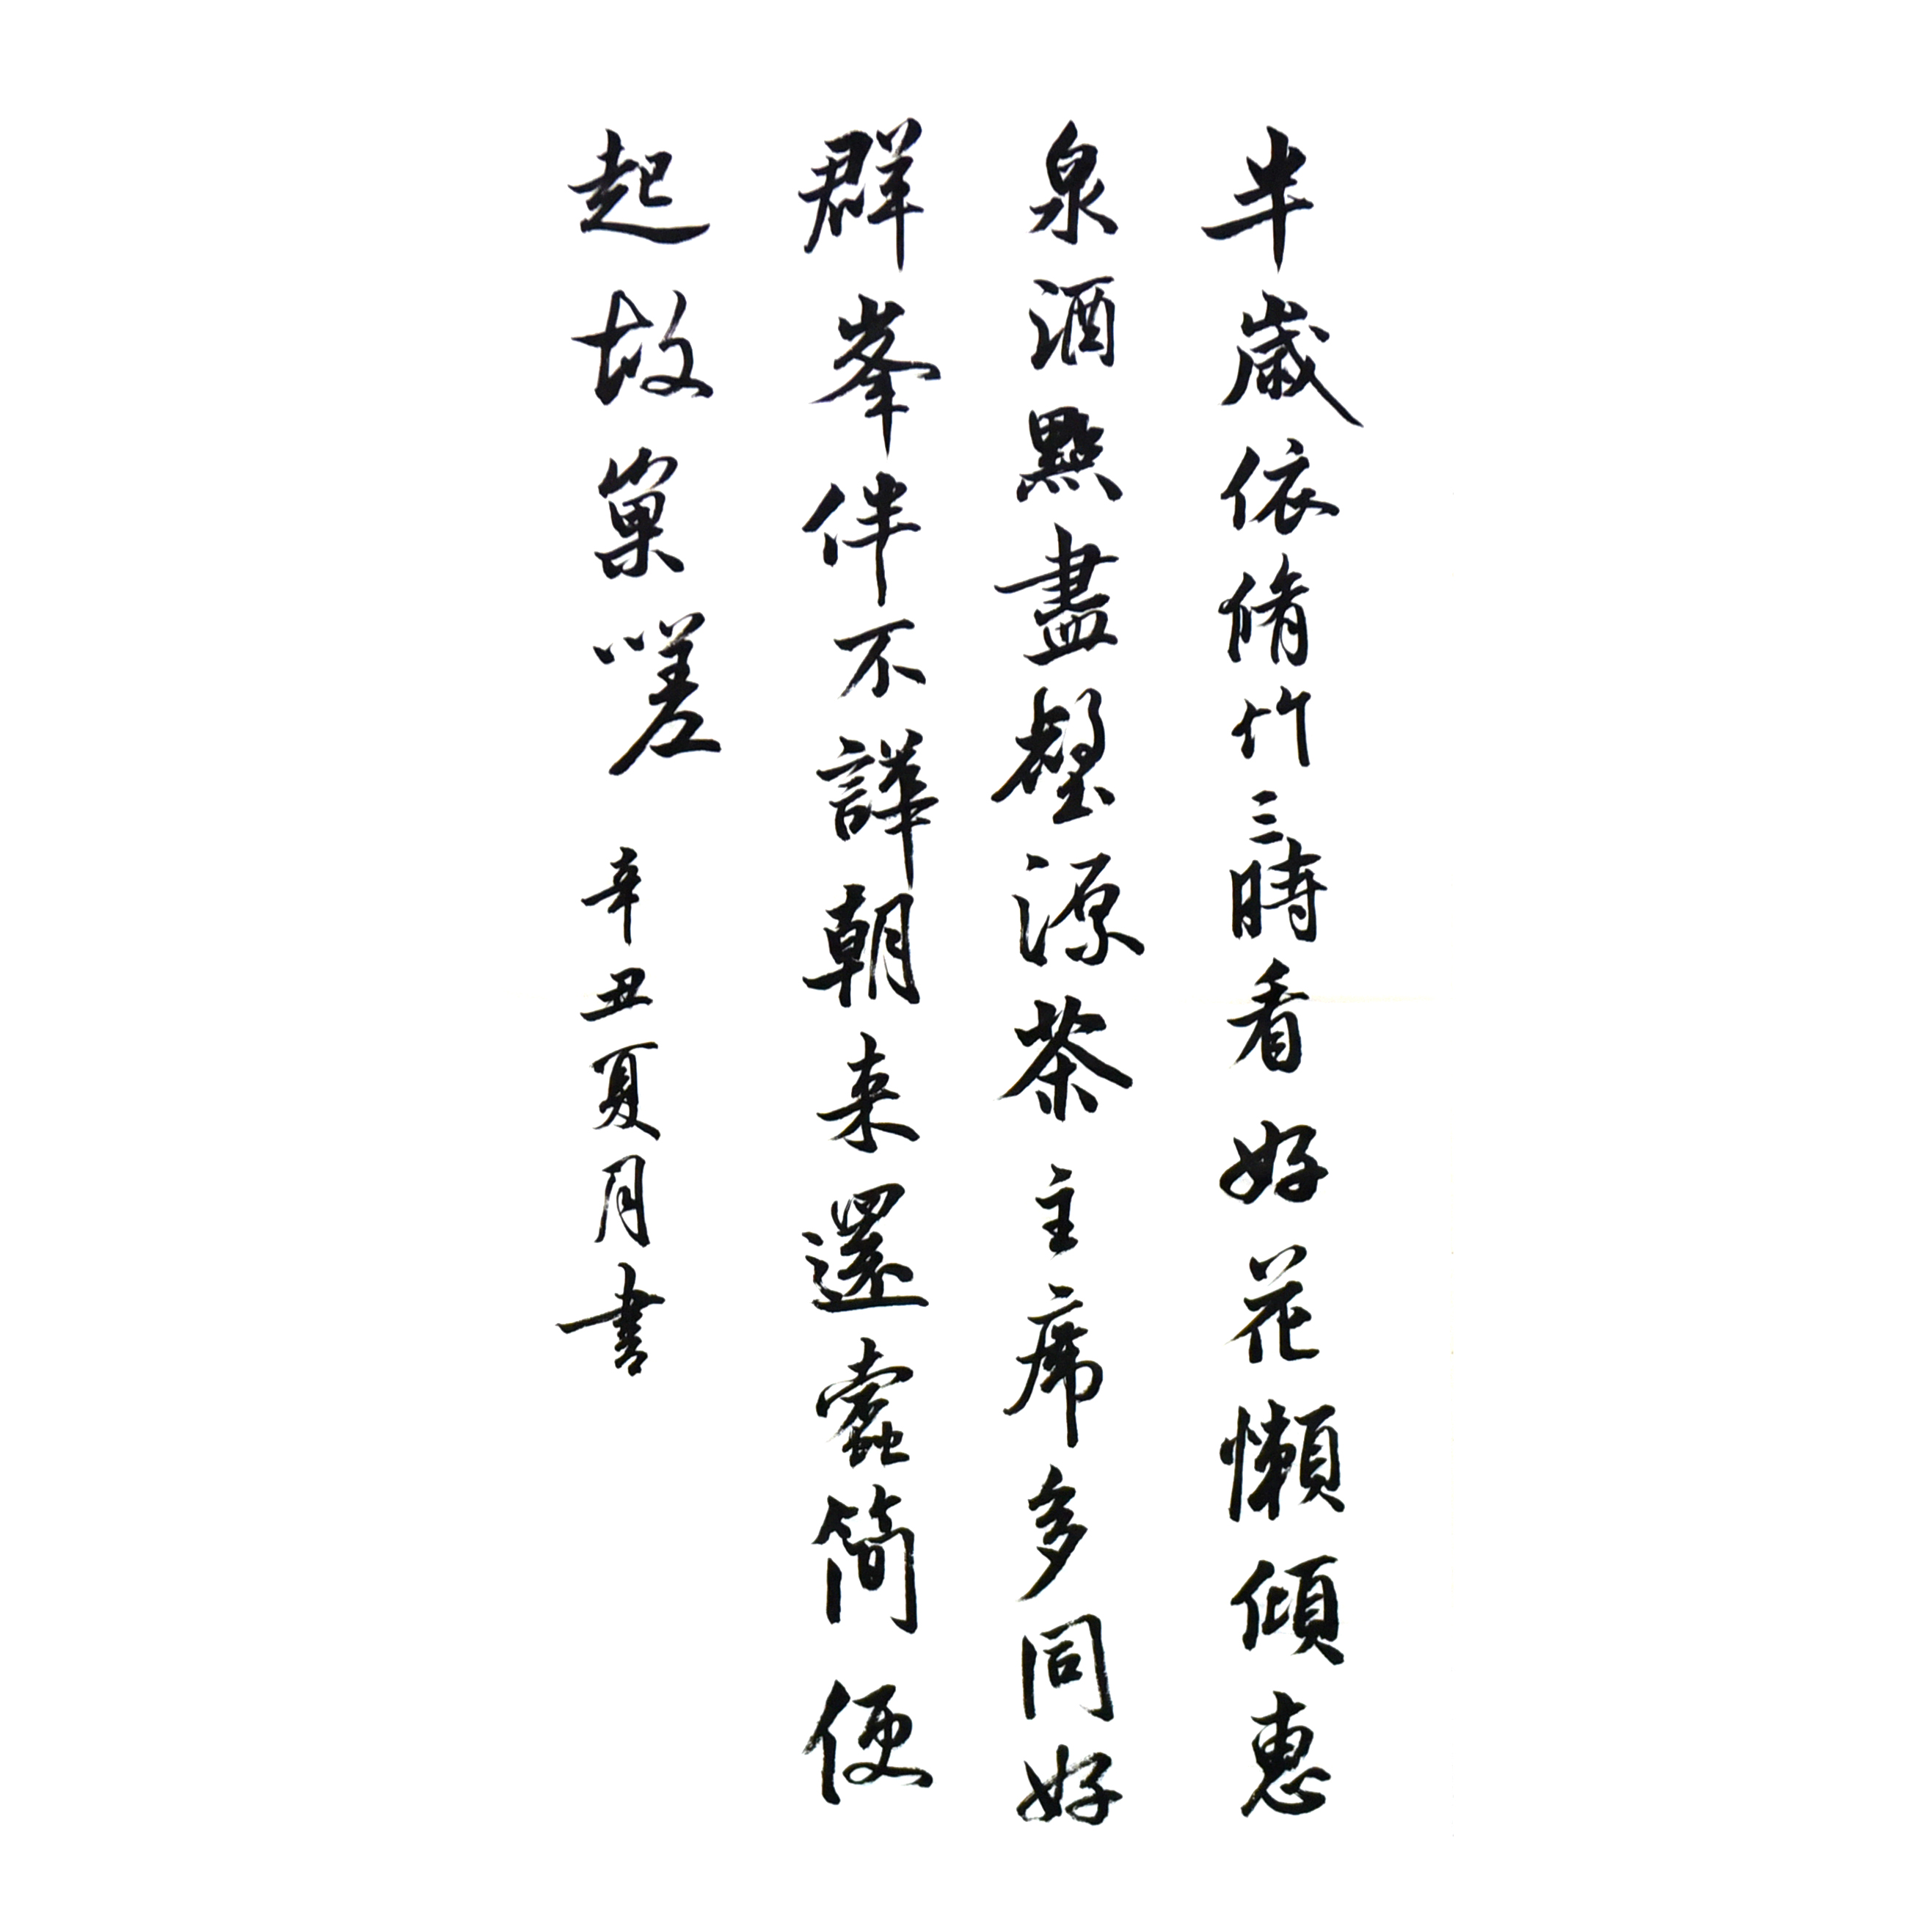 半歲依脩竹三時看好花懶傾惠
泉酒點盡壑源茶主席多同好
群峯伴不譁朝来還蠹簡便
起故巢嗟辛丑夏月書